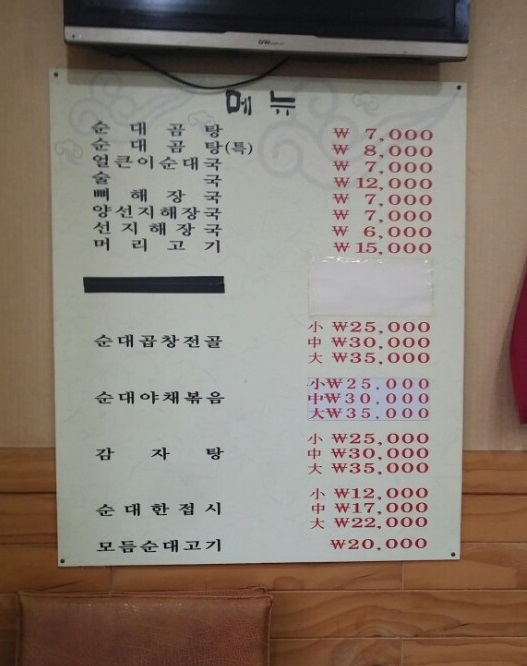 메뉴
순대곰탕 ₩ 7,000
순대곰탕(특) ₩ 8,000
얼큰이순대국 ₩ 7,000
술국 ₩ 12,000
뼈해장국 ₩ 7,000
양선지해장국 ₩ 7,000
선지해장국 ₩ 6,000
머리고기 ₩ 15,000
순대곱창전골 小 ₩25,000
中 ₩30,000
大 ₩35,000
순대야채볶음 小₩25,000
中₩30,000
大₩35,000
감자탕 小 ₩25,000
中 ₩30,000
大 ₩35,000
순대한접시 小 ₩12,000
中 ₩17,000
大 ₩22,000
모듬순대고기 ₩20,000